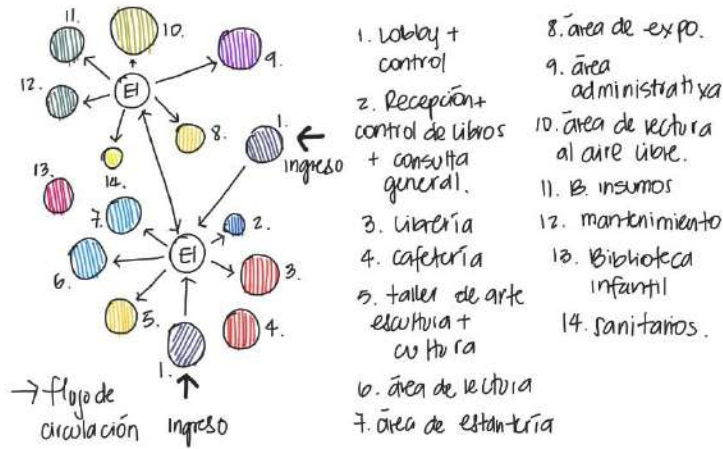 11.
10.
12.
EI
9.
8.
1.
ingreso
14.
13.
7.
2.
EI
6.
3.
5.
4.
1.
→ flujo de
circulación
ingreso
1. Lobby +
control
2. Recepción+
control de libros
+ consulta
general.
3. Librería
4. cafetería
5. taller de arte
escultura +
cultura
6. área de lectura
7. área de estantería
8. área de expo.
9. área
administrativa
10. área de lectura
al aire libre.
11. B. insumos
12. mantenimiento
13. Biblioteca
infantil
14. sanitarios.